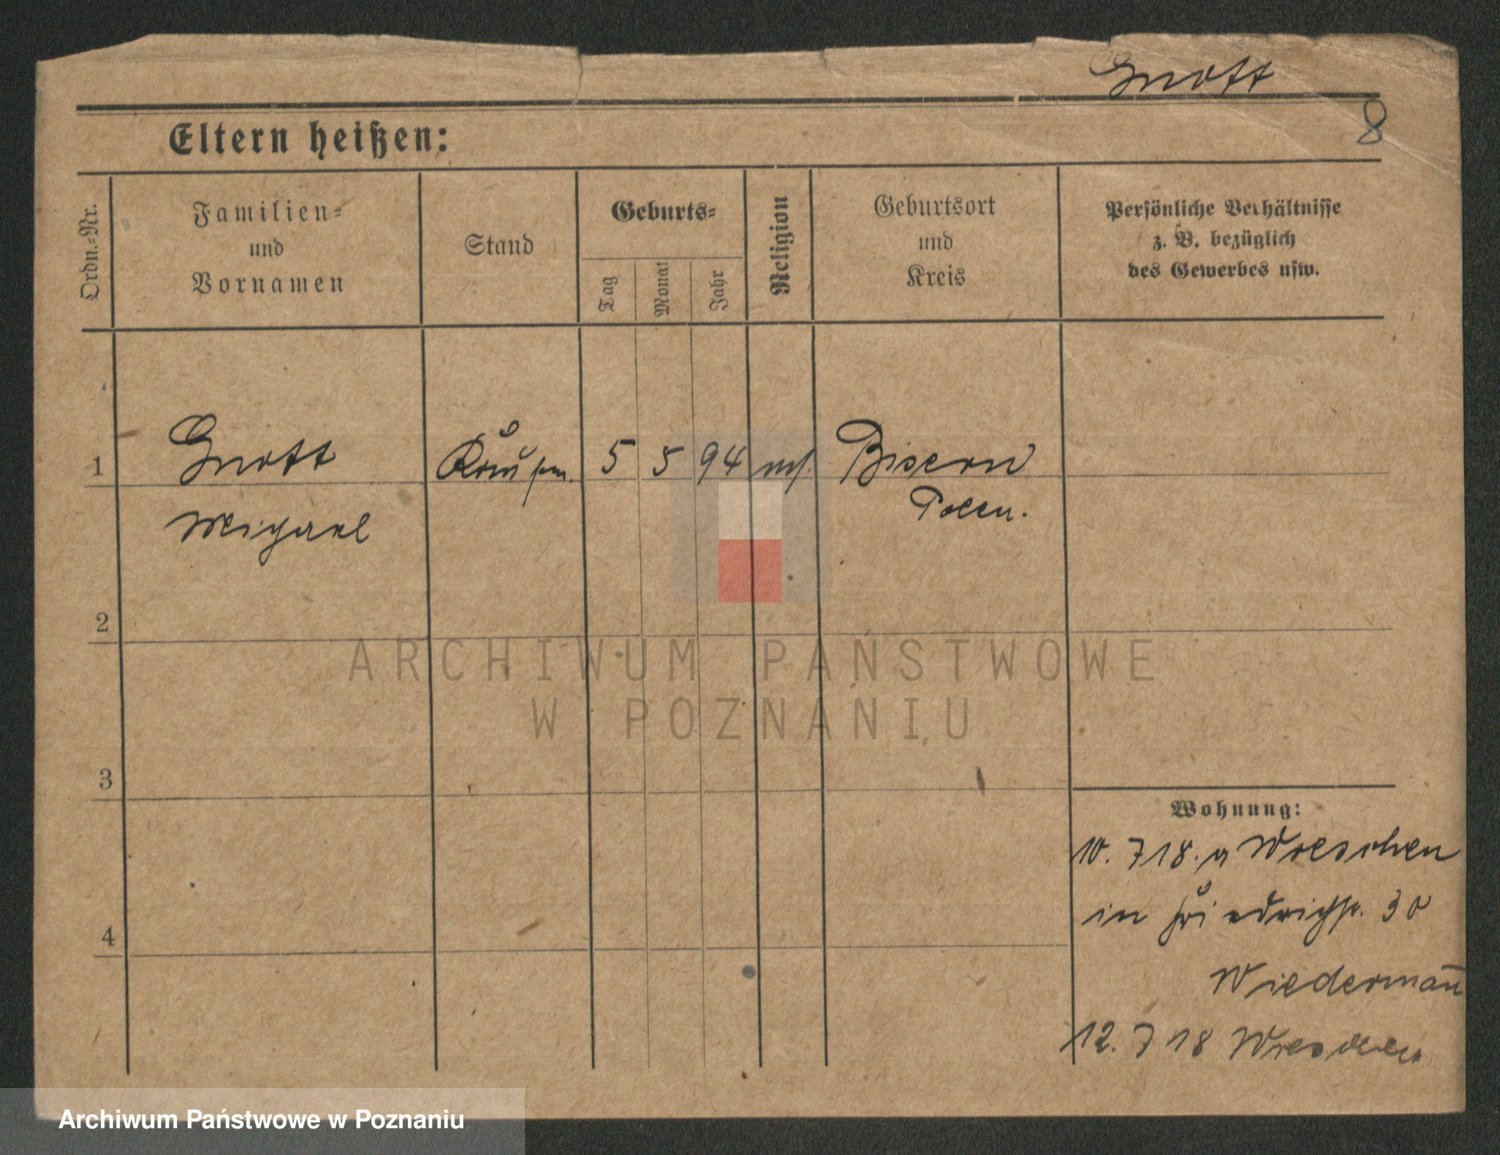 Gnott
8
Eltern heißen:
Ordn.-Nr.
Familien-
und
Vornamen
Stand
Geburts-
Tag
Monat
Jahr
Religion
Geburtsort
und
Kreis
Persönliche Verhältnisse
z. B. bezüglich
des Gewerbes usw.
1
Gnott
5 5 94
Bisern
Polen.
Michael
2
ARCHIWUM PAŃSTWOWE
W POZNANIU
3
Wohnung:
10. 7 18. a Wreschen
in Friedrichstr. 30
4
Wiedermann
12. 7 18 Wreschen
Archiwum Państwowe w Poznaniu